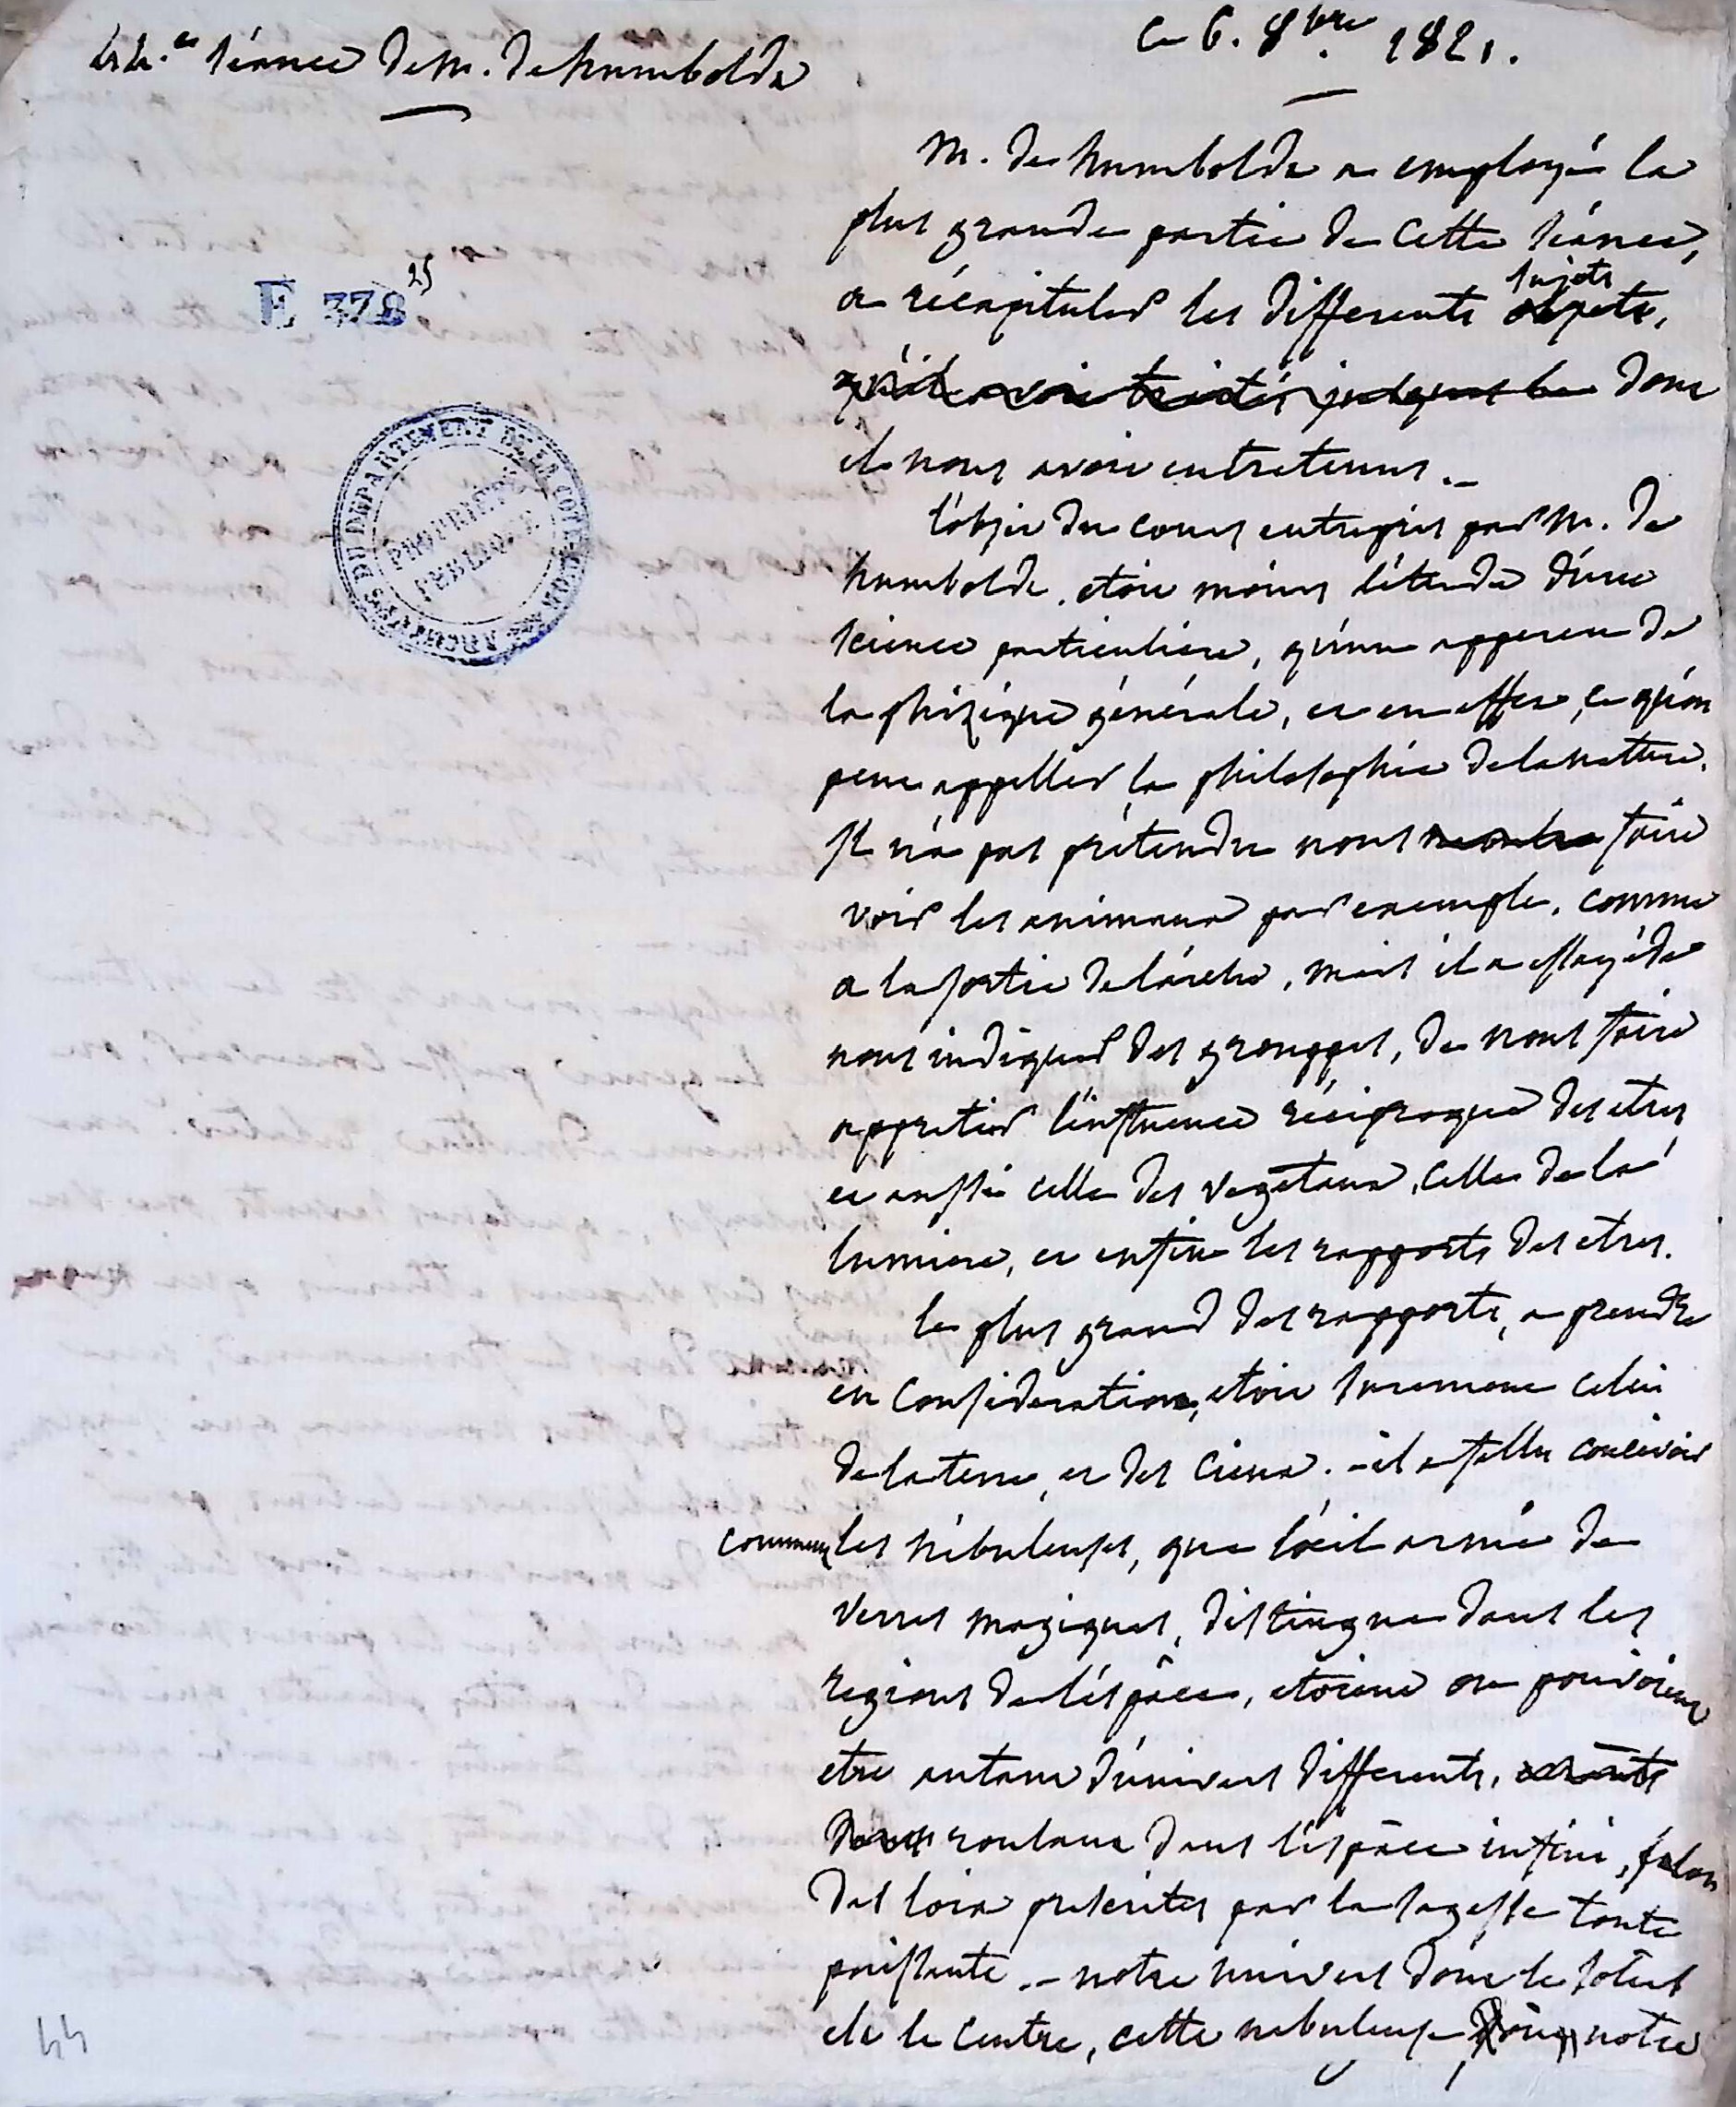 44.e séance de M. de humboldt
ce 6. 8bre. 1821.
M. de humboldt a employé la
plus grande partie de cette séance,
a récapituler les differents sujets
objets,
qu'il avoit traités jusques la dont
il nous avoit entretenus. _
l'objet du cours entrepris par M. de
humboldt, etoit moins l'étude d'une
science particuliere, qu'un apperçu de
la phizique générale, et en effet, ce qu'on
peut appeller la philosophie de la nature.
Il n'a pas prétendu nous faire
voir les animaux par exemple, comme
a la sortie de l'arche, mais il a essayé de
nous indiquer des grouppes, de nous faire
appretier l'influence réciproque des etres
et aussi celle des vegetaux, celle de la
lumiere, et enfin les rapports des etres.
le plus grand des rapports, a prendre
en consideration, etoit surement celui
de la terre, et des cieux. - il a fallu concevoir
comment les nébuleuses, que l'oeil armé de
verres magiques, distingue dans les
regions de l'éspâce, etoient ou pouvoient
etre autant d'univers differents,
roulant dans l'éspâce infini, selon
des loix prescrites par la sagesse toute
puissante. - notre univers dont le soleil
est le centre, cette nebuleuse dont notre
E 378 25
ARCHIVES DU DEPARTEMENT DE LA COTE D'OR
PROPRIÉTÉ PUBLIQUE
44